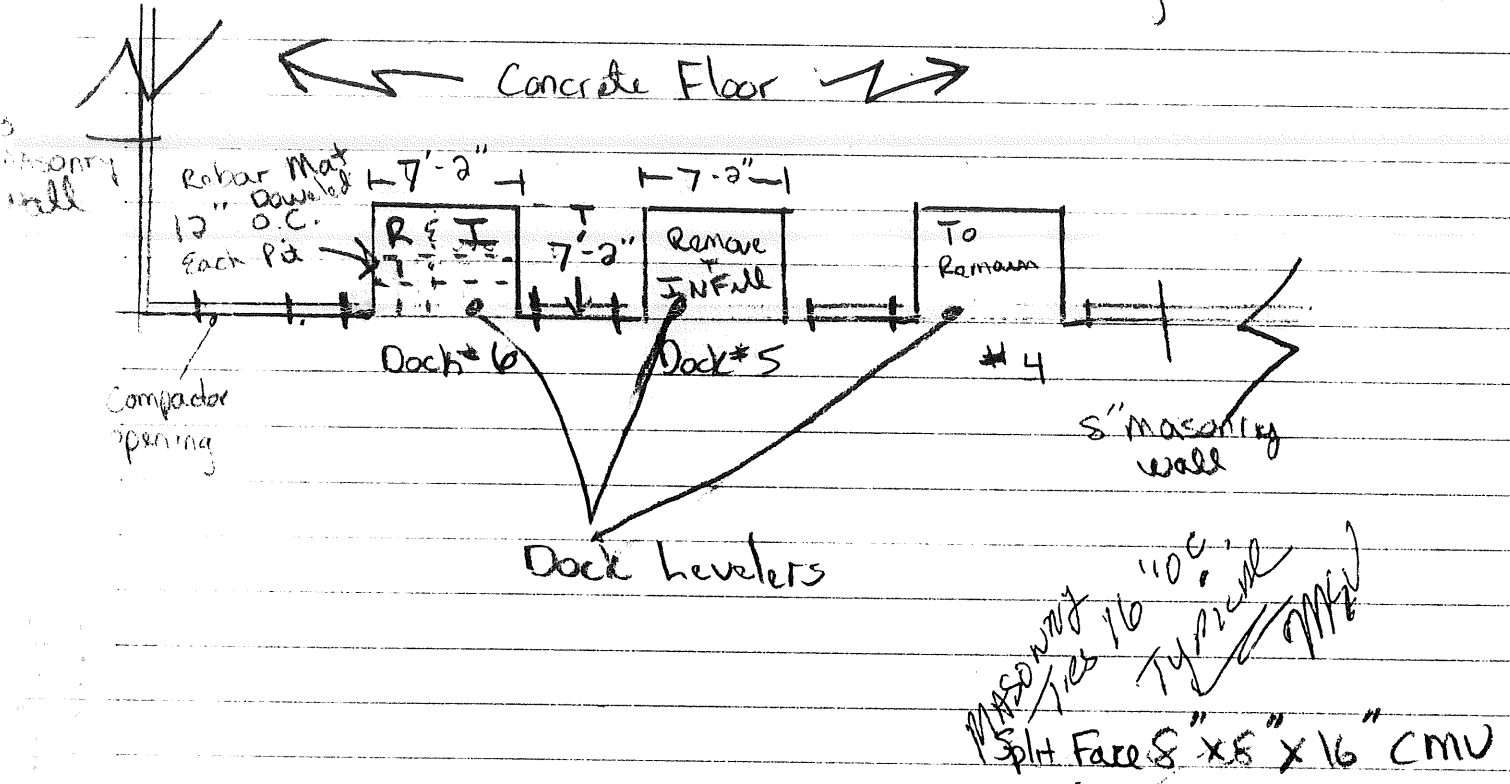 Concrete Floor
masonry
wall
Rebar Mat
Doweled
12" O.C.
Each Pit
7'-2"
7-2"
R & I
7'-2"
Remove
+
INFill
To
Remain
Dock #6
Dock #5
#4
Compactor
opening
8" Masonry
wall
Dock Levelers
MASONRY
Ties 16" OC.
TYPICAL
Split Face 8" x 8" x 16" CMU